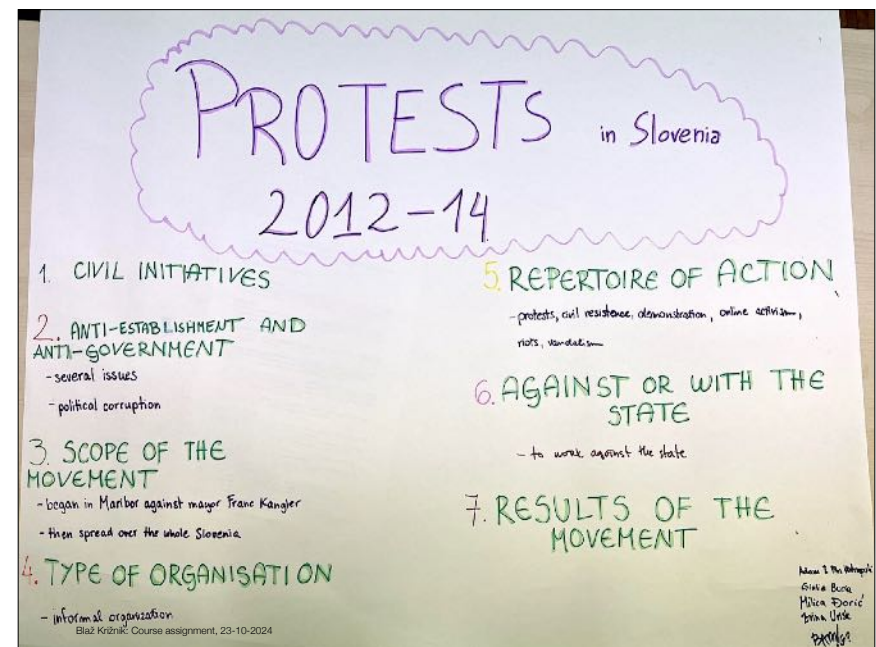 PROTESTS in Slovenia
2012-14
1. CIVIL INITIATIVES
2. ANTI-ESTABLISHMENT AND
ANTI-GOVERNMENT
- several issues
- political corruption
3. SCOPE OF THE
MOVEMENT
- began in Maribor against mayor Franc Kangler
- then spread over the whole Slovenia
4. TYPE OF ORGANISATION
- informal organization
5. REPERTOIRE OF ACTION
- protests, civil resistence, demonstration, online activism,
riots, vandalism
6. AGAINST OR WITH THE
STATE
- to work against the state
7. RESULTS OF THE
MOVEMENT
Milica Đorić
Blaž Križnik: Course assignment, 23-10-2024